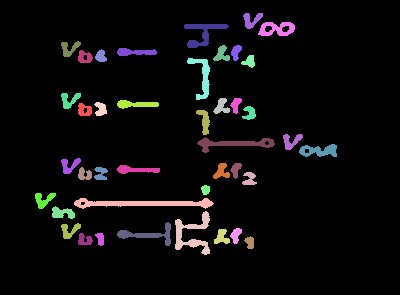 V_DD
V_b4 M_4
V_b3 M_3
V_out
V_b2 M_2
V_in
V_b1 M_1